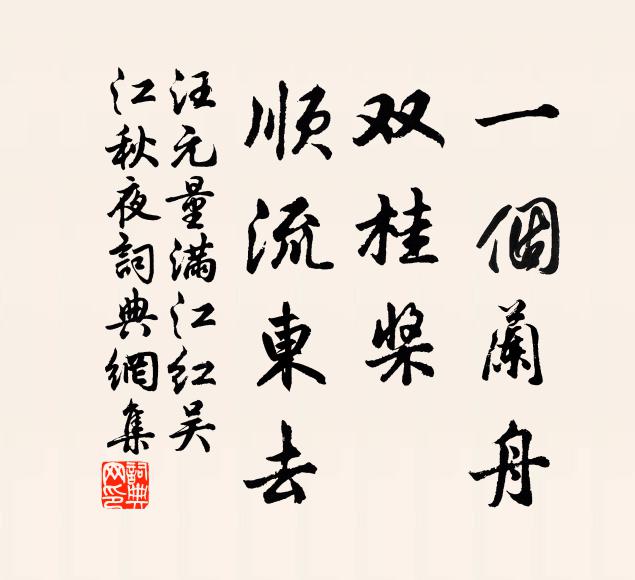 一個蘭舟
双桂桨
順流東去
汪元量满江红吴
江秋夜詞典網集
詞典
网印